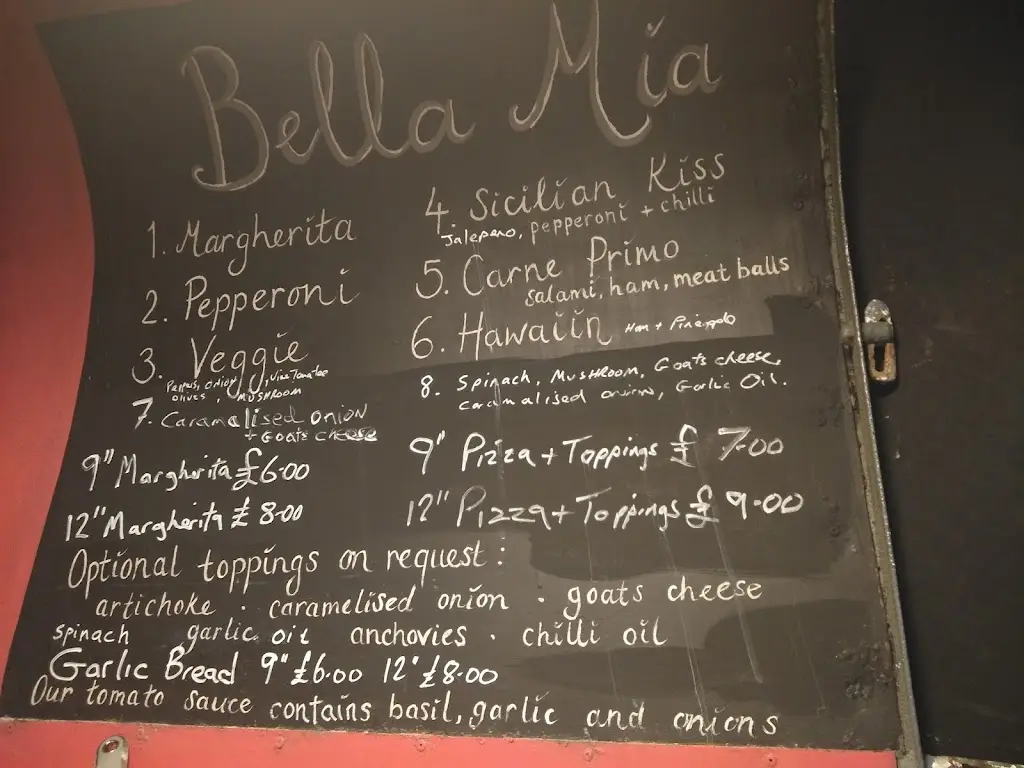 Bella Mia
1. Margherita
2. Pepperoni
3. Veggie
onion, vine Tomatoe
olives, MUSHROOM
7. Caramalised onion
+ Goats cheese
4. Sicilian Kiss
Jalepeno, pepperoni + chilli
5. Carne Primo
salami, ham, meat balls
6. Hawaiin Ham + Pineapple
8. Spinach, MUSHROOM, Goats cheese,
caramalised onion, Garlic Oil.
9" Margharita £6.00
12" Margharita £8.00
9" Pizza + Toppings £7.00
12" Pizza + Toppings £9.00
Optional toppings on request:
artichoke . caramelised onion . goats cheese
spinach garlic oil anchovies . chilli oil
Garlic Bread 9" £6.00 12" £8.00
Our tomato sauce contains basil, garlic and onions